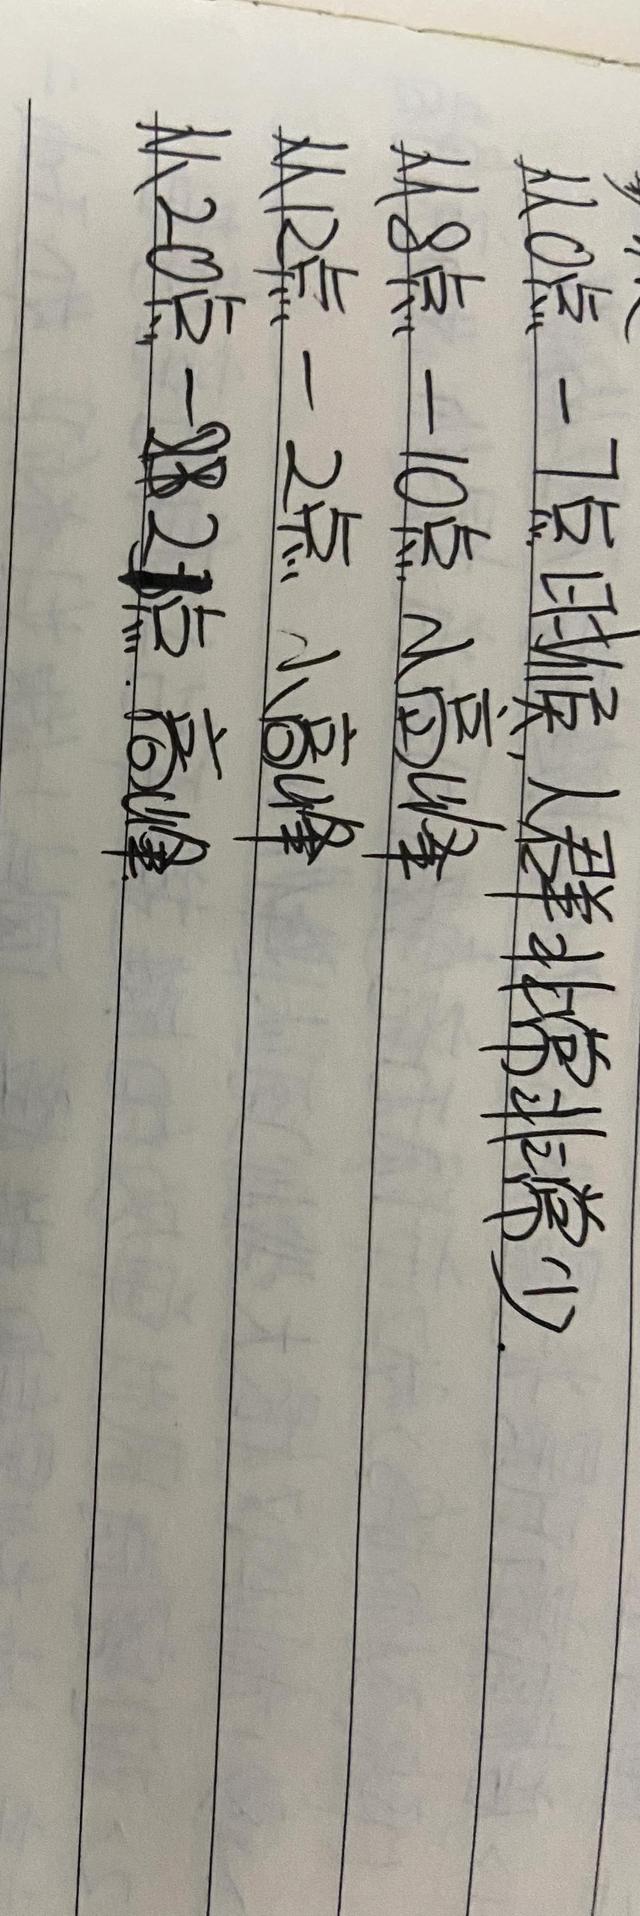 从0点 - 7点时候，人群非常非常少.
从8点 - 10点 小高峰
从12点 - 2点 小高峰
从20点 - 21点. 高峰